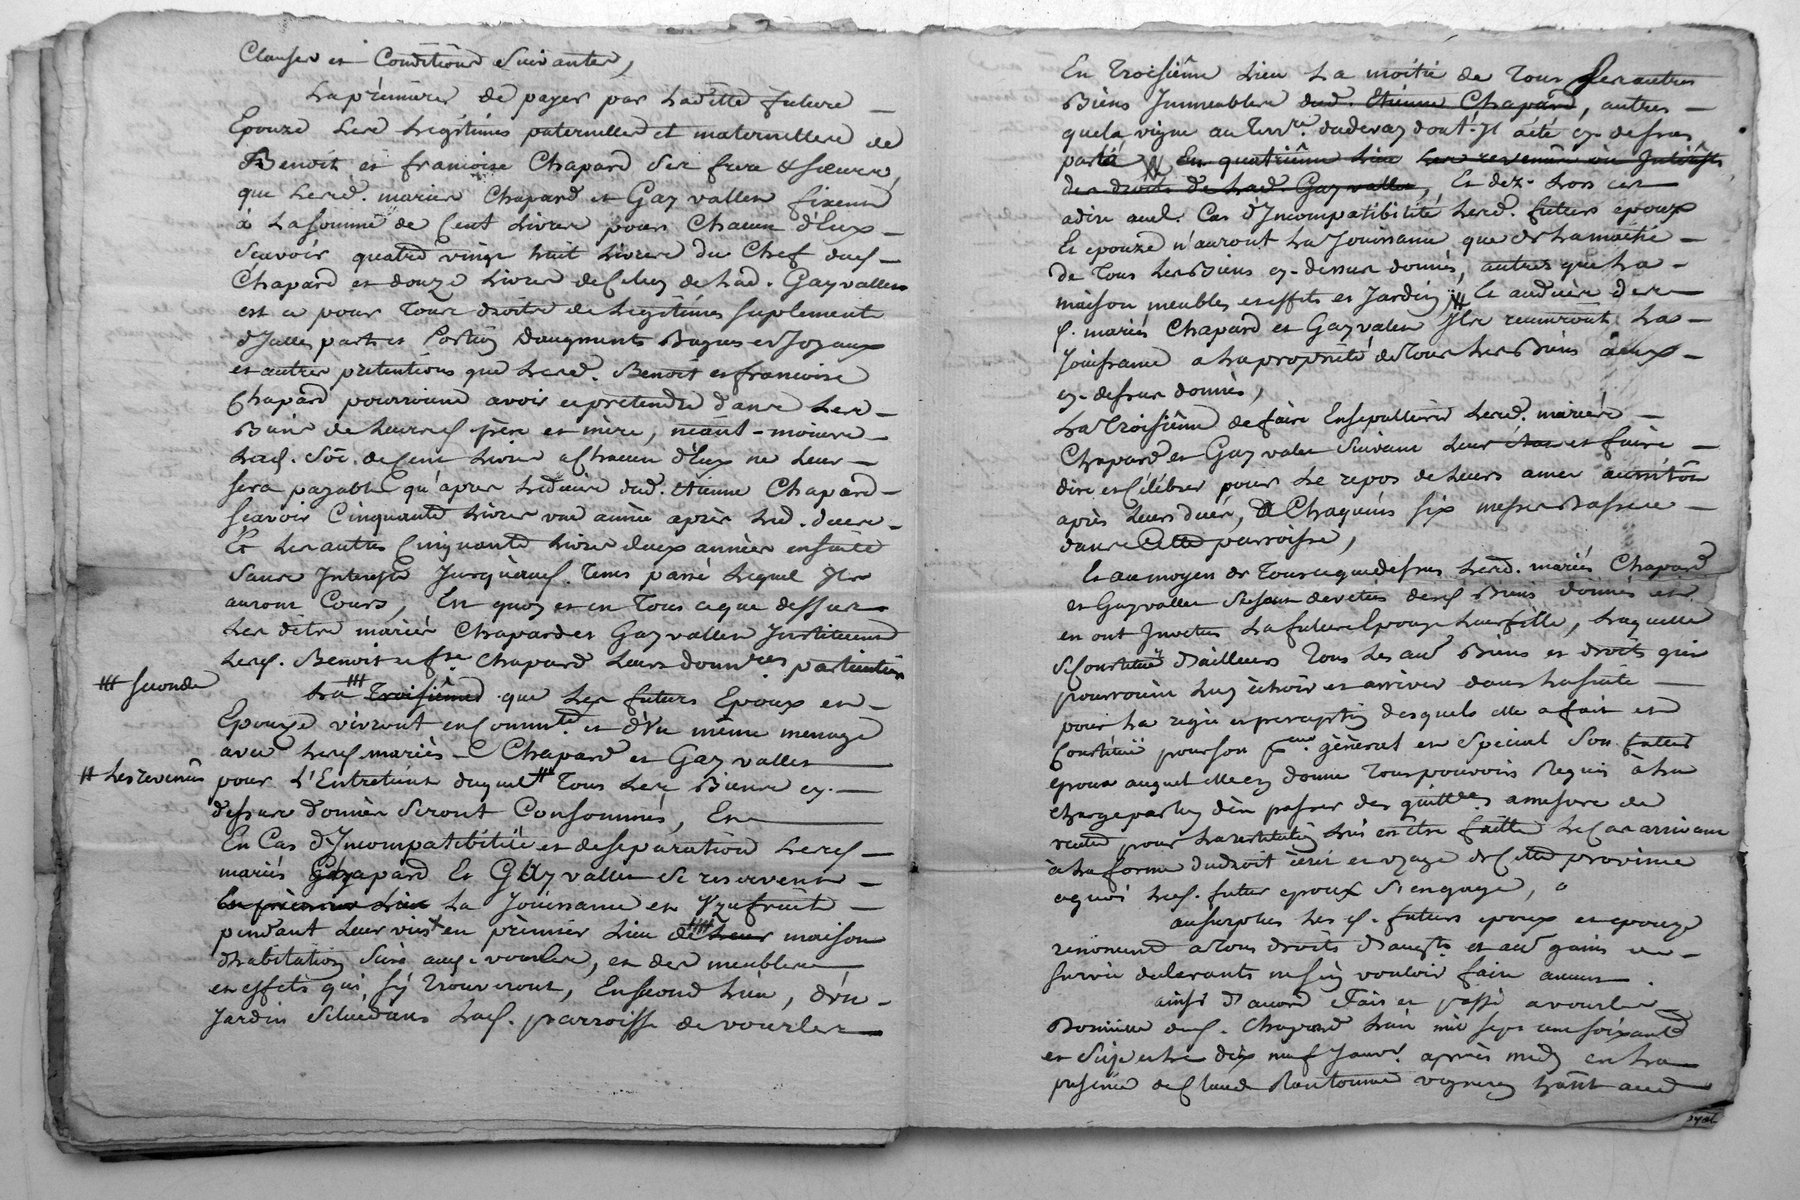 Clauses et Conditions Suivantes,
La premiere de payer par Laditte future
Epouze Lesd Legitimes paternelles et maternelles de
Benoit et francoise Chapard Ses frere & soeurs,
que Lesd. mariés Chapard et Gayvallet fixent
à La somme de Cent Livres pour Chacun d'Eux
Scavoir quatre vingt huit Livres du Chef dud.
Chapard et douze Livres de Celuy de Lad. Gayvallet
est ce pour Tous droits de Legitimes suplement
d'Icelles parts et Portion Daugments Bagues et Joyaux
et autres pretentions que Lesd. Benoit et francoise
Chapard pourroient avoir et pretendre dans Les
Biens de Leursd. père et mère, néant-moins
Lad. Soe. de Cent Livres a Chacun d'Eux ne Leur
sera payable qu'apres Le deces dud. Etienne Chapard
scavoir Cinquante Livres une année après Led. deces
Et Les autres Cinquante Livres deux années ensuite
Sans Interests Jusqu'aud. Tems passé Lequel Ils
auront Cours, En quoy et en Tous ce que dessus
Les dits mariés Chapard et Gayvallet Instituent
Lesd. Benoit et fse. Chapard Leurs donnres particuliers
## seconde
La ## Troisième que Les futurs Epoux et
Epouze vivront en Commté. et d'Un même menage
avec Lesd. mariés Chapard et Gayvallet
# Les revenus
pour L'Entretient duquel # Tous Les Biens cy
dessus donnés Seront Consommés, Et
En Cas d'Incompatibilité et de separation Lesd.
mariés Chapard Et Gayvallet se reservent
En premier Lieu La Jouissance et Uzufruit
pendant Leur vie en prémier Lieu de Leur maison
d'habitation Size aud. vourles, et des meubles
et effets qui s'y Trouveront, En second Lieu, d'Un
Jardin Scitué dans Lad. parroisse de vourles
En Troisiême Lieu La moitié de Tous Les autres
Biens Immeubles dud. Etienne Chapard, autres
que La vigne au Terrre. dudevay dont Il a été cy dessus
parlé En quatriême Lieu Les revenus ou Interêts
des droits de Lad. Gayvallet, Et dez Lors cet
adire aud. Cas d'Incompatibilité Lesd. futurs epoux
Et epouze n'auront La Jouissance que de La moitié
de Tous Les Biens cy-dessus donnés, autres que La
maison meubles et effets et Jardin, Et au deces des
d. mariés Chapard et Gayvallet Ils reuniront La
Jouissance a La proprieté de Tous Les Biens à eux
cy-dessus donnés,
La Troisiême de faire Ensepulturer Lesd. mariés
Chapard et Gayvallet Suivant Leur état et faire
dire et Célébrer pour Le repos de Leurs ames aussitôt
après Leurs deces, a Chaquuns six messes Basses
dans Cette parroisse,
Et au moyen de Tous ce que dessus Lesd. mariés Chapard
et Gayvallet Se sont devetus desd. Biens donnés et
en ont Investus La future Epouze Leur fille, Laquelle
se Constitue d'ailleurs Tous Les aues Biens et droits qui
pourroient Luy échoir et arriver dans La suite
pour La regie et perception desquels elle a fait et
Constitué pour son peur. géneral et Special Son futur
epoux auquel elle en donne Tous pouvoirs Requis à La
Charge par Luy d'en passer des quittces a mesure de
recette pour La restitution Luy en être faitte Le Cas arrivant
à La forme du droit écrit et uzage de Cette province
a quoi Led. futur epoux S'engage,
au surplus Les d. futurs epoux et epouze
renoncent a tous droits d'augts. et aues gains de
survie declarants n'en vouloir faire aucun.
ainsi d'accord Fait et passé a vourles
Domicille dud. Chapard L'an mil sept cent soixante
et Seize et Le dix neuf Janvr. après midy en La
presence de Claude vigneron habitt aud